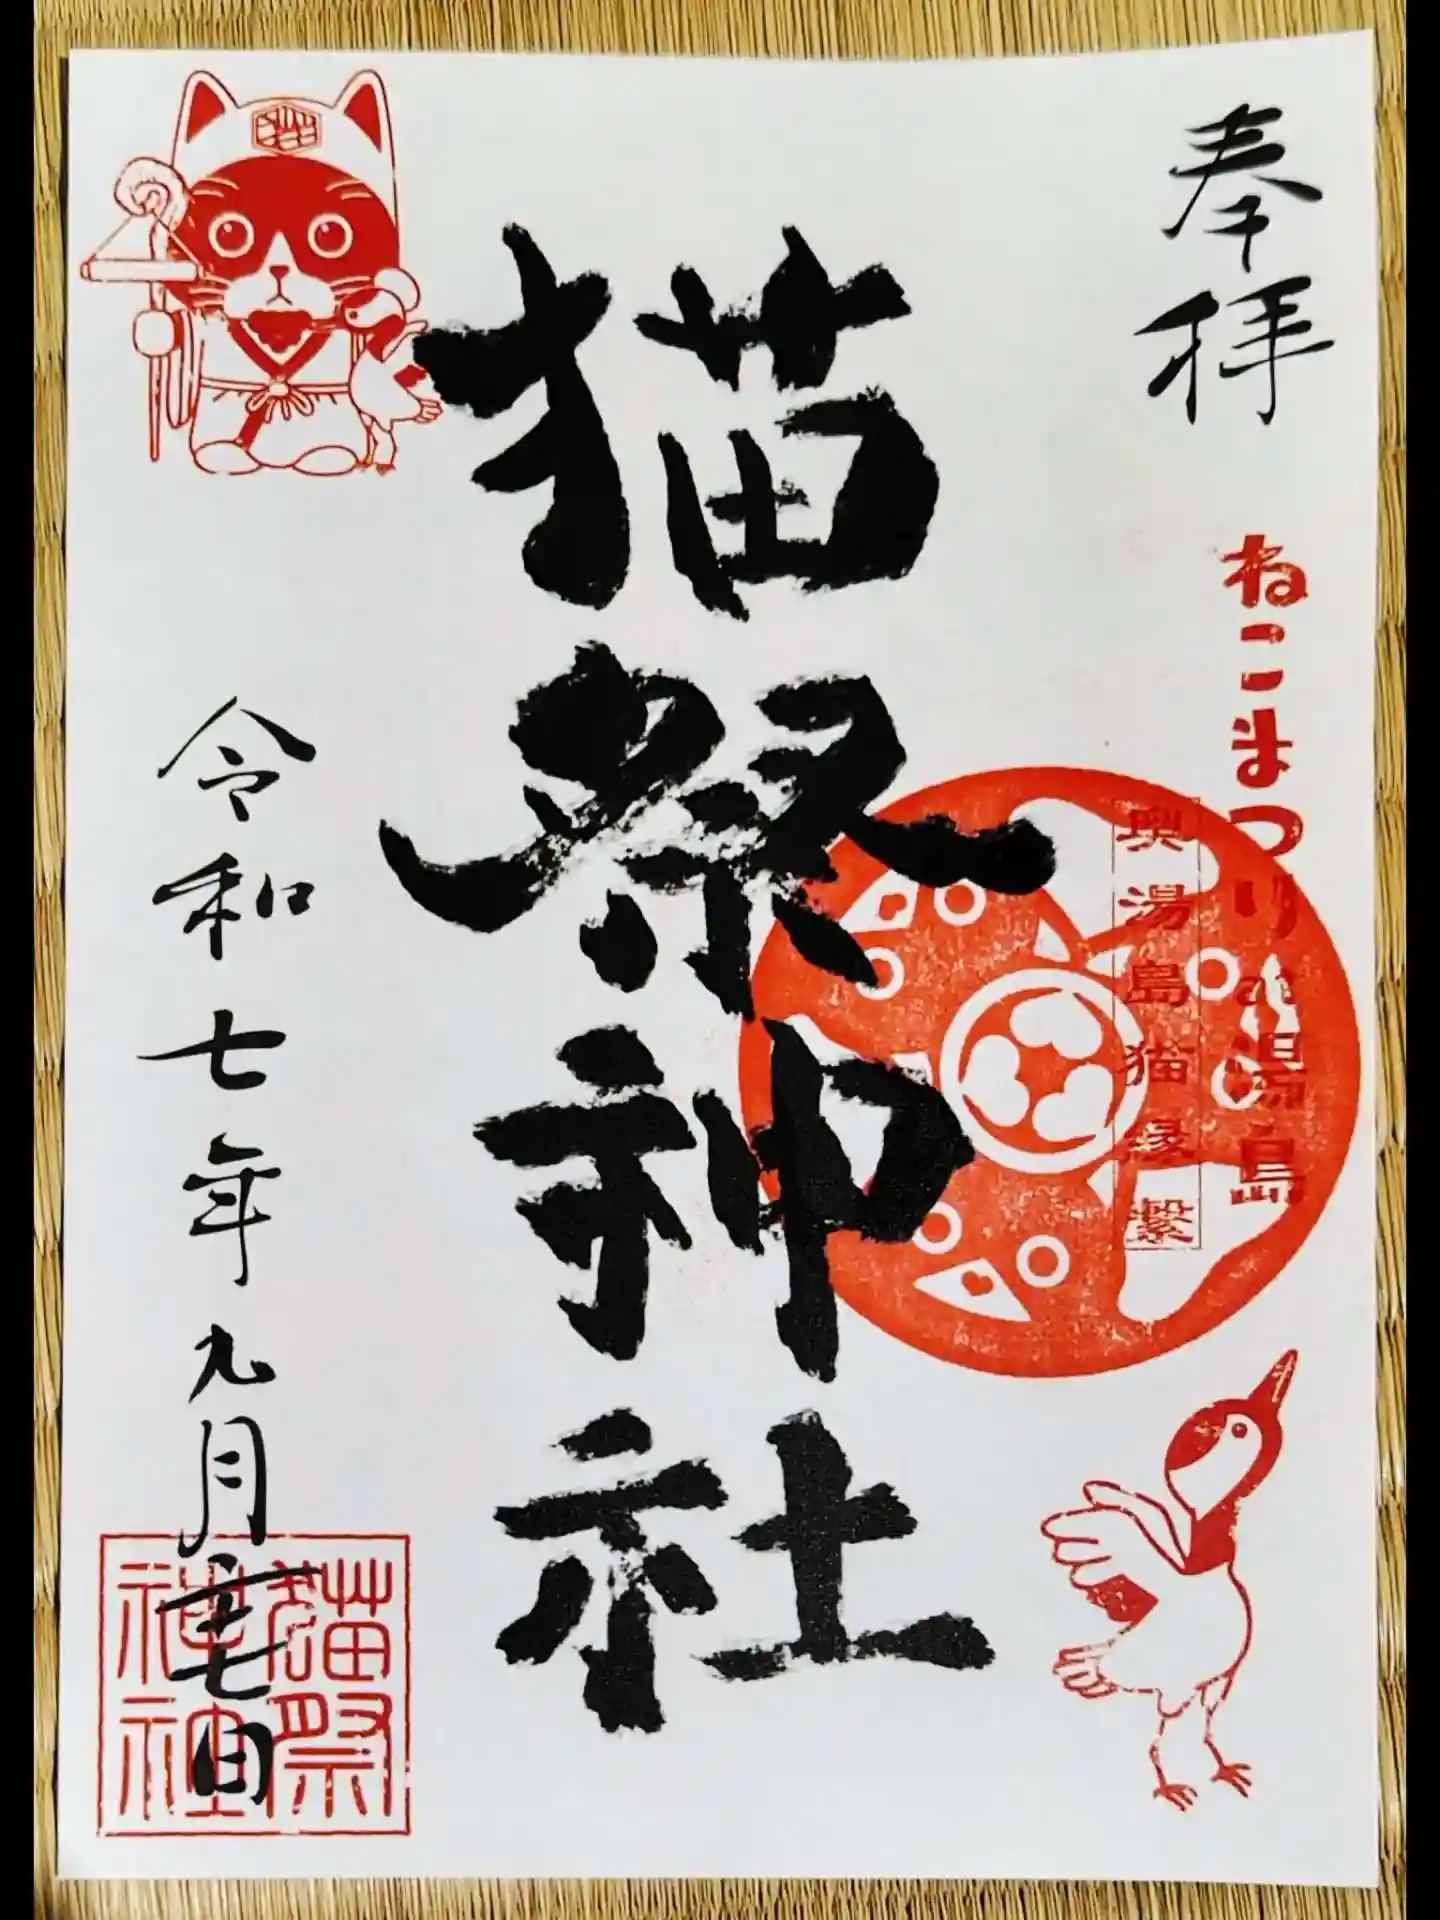 奉拝
ねこまつりの湯島
奥湯島猫縁繋
猫祭神社
令和七年九月二十七日
猫祭
神社